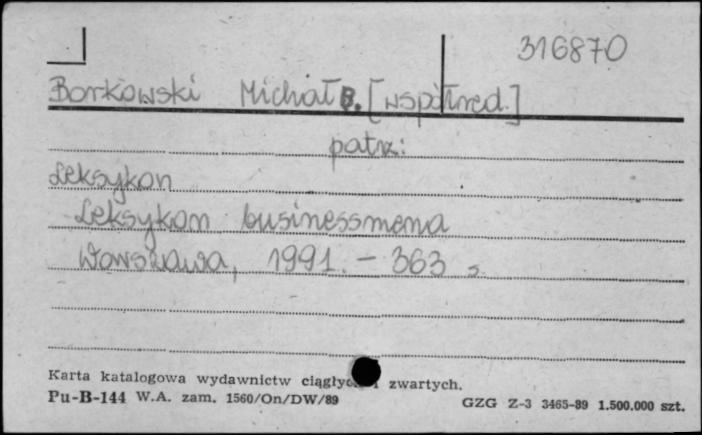 316870
Borkowski Michał B. [współred.]
patrz:
Leksykon
Leksykon businessmena
Warszawa, 1991. - 363 s
Karta katalogowa wydawnictw ciągłych i zwartych.
Pu-B-144 W.A. zam. 1560/On/DW/89
GZG Z-3 3465-89 1.500.000 szt.